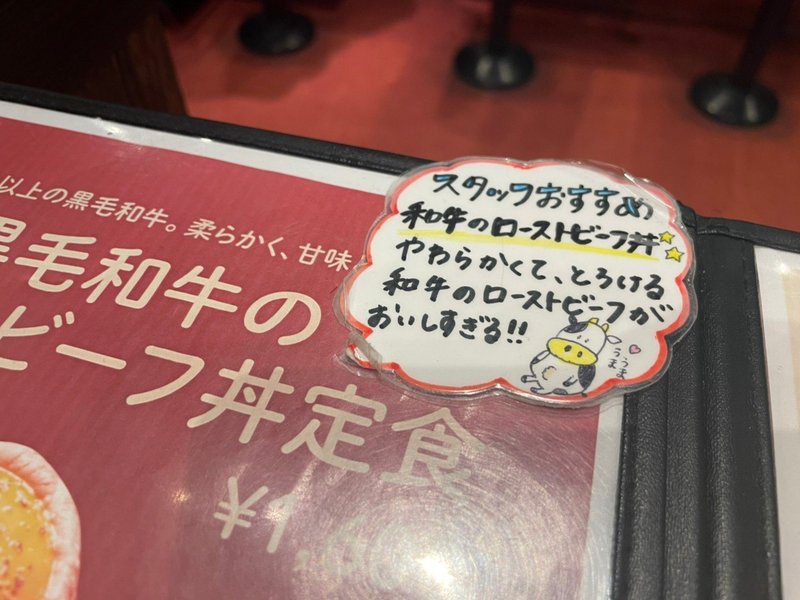 スタッフおすすめ
和牛のローストビーフ丼
やわらかくて、とろける
和牛のローストビーフが
おいしすぎる!!
うま
うま
以上の黒毛和牛。柔らかく、甘味
黒毛和牛の
ビーフ丼定食
¥1,